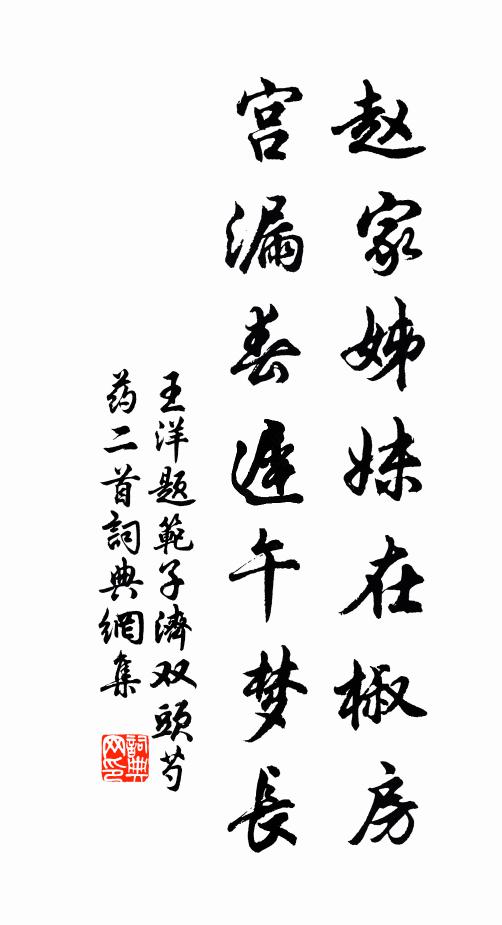 赵家姊妹在椒房
宫漏春遲午梦長
王洋题範子濟双頭芍
药二首詞典網集
詞典网印